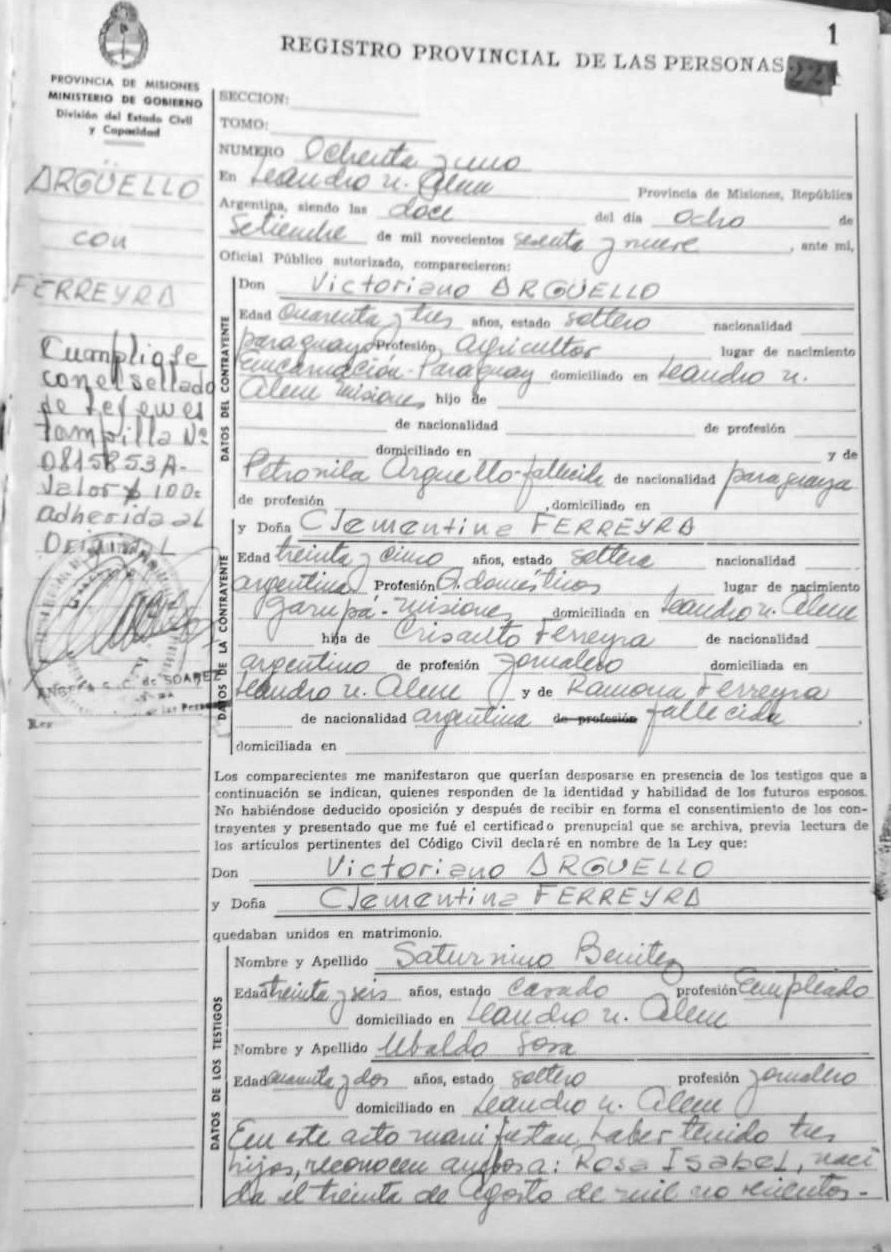 1
REGISTRO PROVINCIAL DE LAS PERSONAS
221
PROVINCIA DE MISIONES
MINISTERIO DE GOBIERNO
División del Estado Civil
y Capacidad
ARGÜELLO
con
FERREYRA
Cumpliose
con el sellado
de Ley en es
tampilla Nº
0815853A-
Valor $ 100=
adherida al
Original
ANGELA S. C. de SOAREZ
SECCION:
TOMO:
NUMERO Ochenta y uno
En Leandro N. Alem Provincia de Misiones, República
Argentina, siendo las doce del día ocho de
Setiembre de mil novecientos sesenta y nueve, ante mi,
Oficial Público autorizado, comparecieron:
DATOS DEL CONTRAYENTE
Don Victoriano ARGÜELLO
Edad Cuarenta y tres años, estado soltero nacionalidad
paraguayo Profesión Agricultor lugar de nacimiento
Encarnación-Paraguay domiciliado en Leandro N.
Alem Misiones, hijo de
de nacionalidad de profesión
domiciliado en y de
Petronila Arguello-fallecida de nacionalidad paraguaya
de profesión , domiciliado en
DATOS DE LA CONTRAYENTE
y Doña Clementina FERREYRA
Edad treinta y cinco años, estado soltera nacionalidad
argentina Profesión Q. domésticos lugar de nacimiento
Garupá-Misiones domiciliada en Leandro N. Alem
hija de Crisanto Ferreyra de nacionalidad
argentino de profesión jornalero domiciliada en
Leandro N. Alem y de Ramona Ferreyra
de nacionalidad argentina de profesión fallecida
domiciliada en
Los comparecientes me manifestaron que querían desposarse en presencia de los testigos que a
continuación se indican, quienes responden de la identidad y habilidad de los futuros esposos.
No habiéndose deducido oposición y después de recibir en forma el consentimiento de los con-
trayentes y presentado que me fué el certificado prenupcial que se archiva, previa lectura de
los artículos pertinentes del Código Civil declaré en nombre de la Ley que:
Don Victoriano ARGUELLO
y Doña Clementina FERREYRA
quedaban unidos en matrimonio.
DATOS DE LOS TESTIGOS
Nombre y Apellido Saturnino Benitez
Edad treinta y seis años, estado casado profesión Empleado
domiciliado en Leandro N. Alem
Nombre y Apellido Ubaldo Sosa
Edad cuarenta y dos años, estado soltero profesión jornalero
domiciliado en Leandro N. Alem
En este acto manifiestan haber tenido tres
hijos, reconocen ambos a: Rosa Isabel, naci
da el treinta de Agosto de mil novecientos-